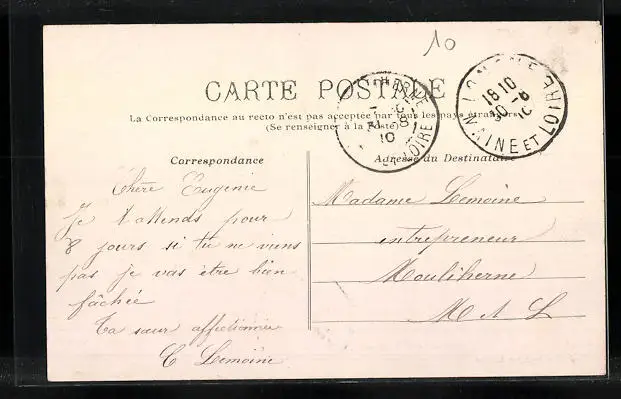 10
CARTE POSTALE
La Correspondance au recto n'est pas acceptée par tous les pays étrangers
(Se renseigner à la Poste)
Correspondance
Adresse du Destinataire
LION
MAINE ET LOIRE
18 10
30 -8
10
HERNE
LOIRE
10
Chère Eugénie
Je t'attends pour
8 jours si tu ne viens
pas je vas être bien
fâchée
Ta sœur affectionnée
C Lemoine
Madame Lemoine
entrepreneur
Mouliherne
M et L